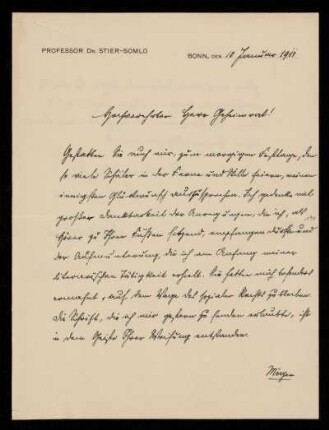 PROFESSOR DR. STIER-SOMLO BONN, DEN 10 Januar 1911
Hochverehrter Herr Geheimrat!
Gestatten Sie auch mir, zum morgigen Festtage, den
so viele Schüler in der Ferne und Stille feiern, meinen
innigsten Glückwunsch auszusprechen. Ich gedenke mit
großer Dankbarkeit der Anregungen, die ich, als
Hörer zu Ihren Füßen sitzend, empfangen durfte und
der Aufmunterung, die ich am Anfang meiner
literarischen Tätigkeit erhielt. Sie hatten mich besonders
ermahnt, auf dem Wege des sozialen Rechts zu bleiben.
Die Schrift, die ich mir gestern zu senden erlaubte, ist
in dem Geiste Ihrer Weisung entstanden.